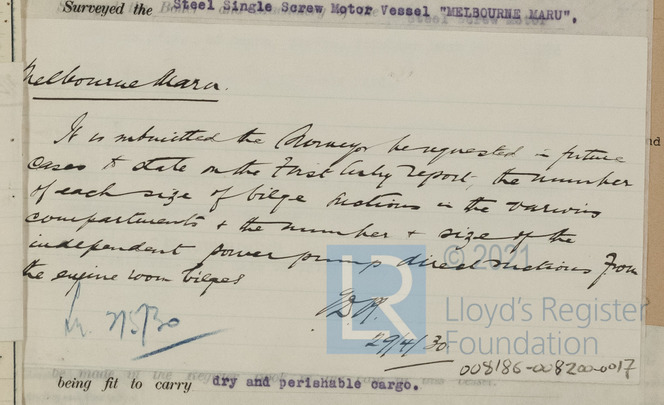 Surveyed the Steel Single Screw Motor Vessel "MELBOURNE MARU".
Melbourne Maru.
It is submitted the Surveyor be requested in future
cases to state on the First Entry report, the number
of each size of bilge suctions in the various
compartments & the number & size of the
independent power pump direct suctions from
the engine room bilges
29/4/30
© 2021
LR
Lloyd's Register
Foundation
008186-008200-0017
being fit to carry dry and perishable cargo.